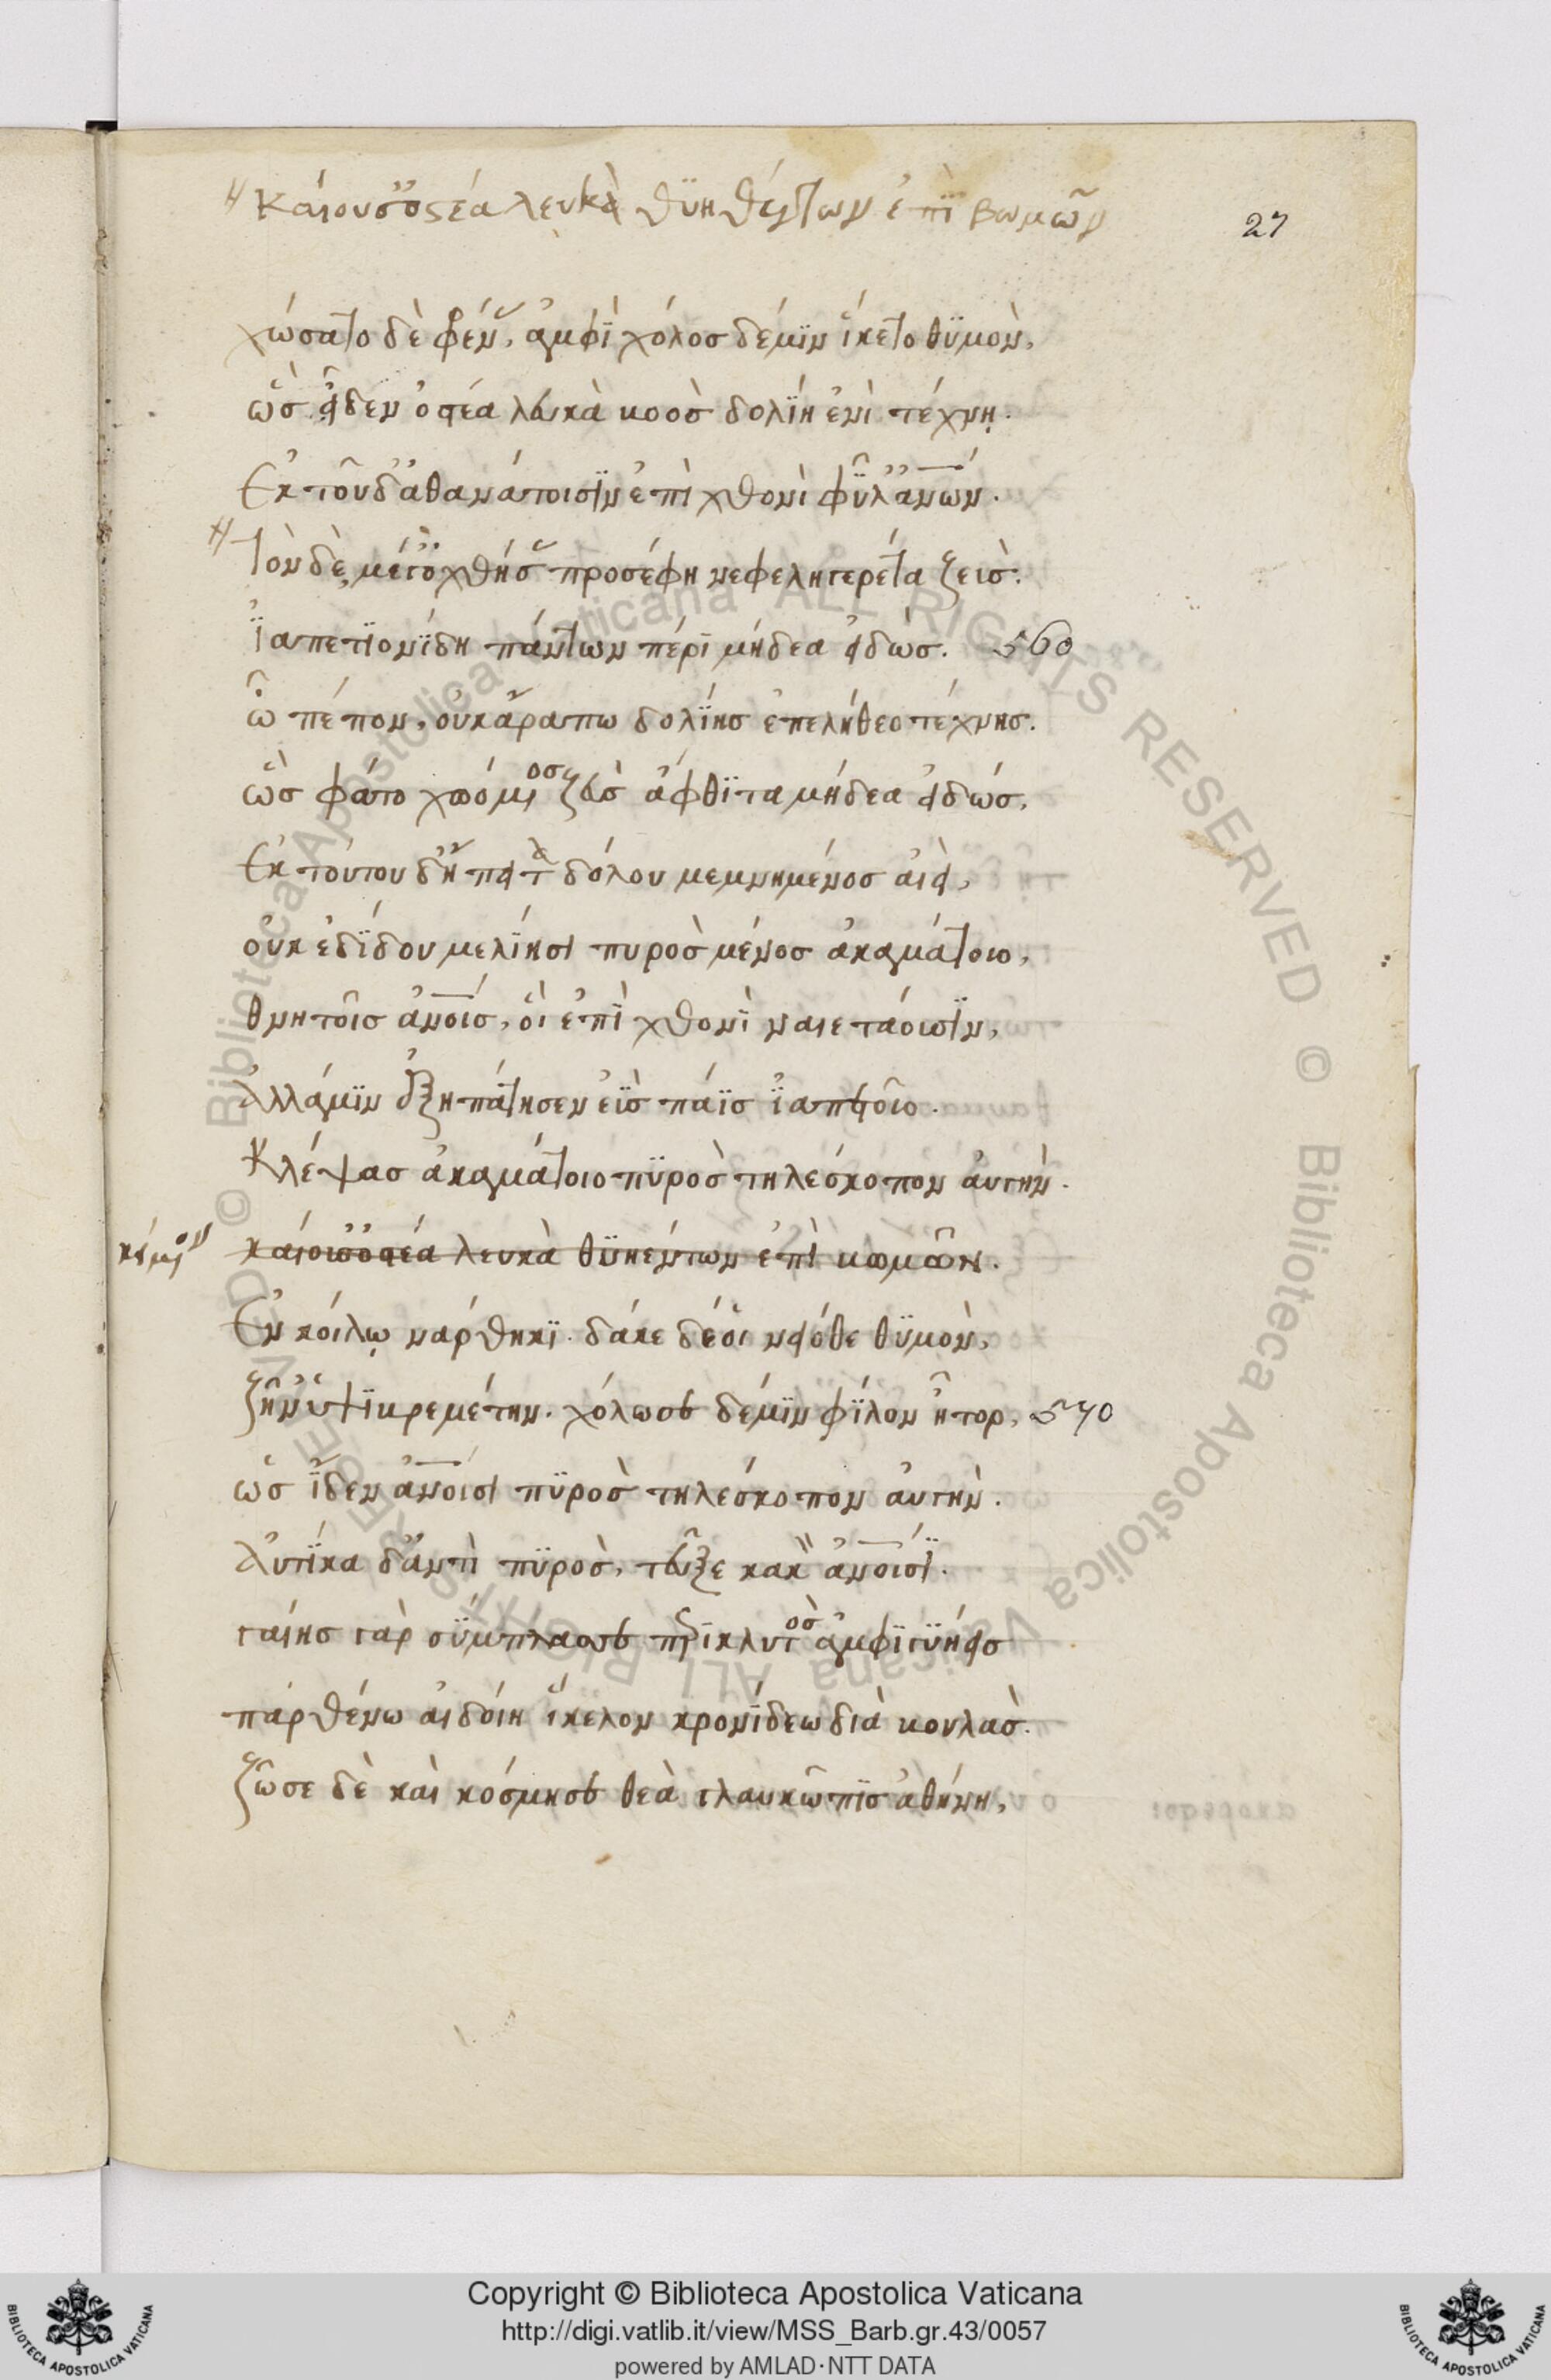 καίουσ' ὀστέα λευκὰ θυηθέντων ἐπὶ βωμῶν
27
χώσατο δὲ φρένα, ἀμφὶ χόλοσ δέ μιν ἵκετο θϋμὸν,
ὡσ εἶδεν ὀστέα λευκὰ βοὸσ δολίη ἐπὶ τέχνη.
Ἐκ τοῦ δ' ἀθανάτοισϊν ἐπὶ χθονὶ φῦλ' ἀνων.
Τὸν δὲ μέγ' ὀχθήσασ προσέφη νεφεληγερέτα ζεὺσ.
ἰαπετϊονίδη πάντων πέρϊ μήδεα εἰδὼσ. 560
ὦ πέπον, οὐκ ἄρα πω δολίησ ἐπελήθεο τέχνησ.
ὣσ φάτο χωόμενοσ ζεὺσ ἄφθϊτα μήδεα εἰδώσ,
Ἐκ τούτου δἤπειτα δόλου μεμνημένοσ αἰεὶ,
οὐκ ἐδίδου μελίησι πυρὸσ μένοσ ἀκαμάτοιο,
θνητοῖσ ἀνοίσ, οἳ ἐπὶ χθονὶ ναιετάουσϊν,
Ἀλλά μϊν ἐξηπάτησεν ἐῢσ πάϊσ ἰαπετοῖο.
Κλέψασ ἀκαμάτοιο πϋρὸσ τηλέσκοπον ἀυγὴν.
κείμενον
καίουσ' ὀστέα λευκὰ θϋηέντων ἐπὶ βωμῶν.
Ἐν κοίλῳ νάρθηκϊ. δάκε δέ οἱ νειόθι θϋμὸν,
ζῆν' ὑψϊβρεμέτην. χόλωσε δέ μϊν φίλον ἦτορ, 570
ὡσ ἴδεν ἀνοισι πϋρὸσ τηλέσκοπον ἀυγὴν.
Ἀυτίκα δ' ἀντὶ πϋρὸσ, τεῦξε κακὸν ἀνοισϊ.
γαίησ γὰρ σύμπλασσε περϊκλυτὸσ ἀμφϊγϋήεισ
παρθένω αἰδοίη ἴκελον κρονίδεω διὰ βουλὰσ.
ζῶσε δὲ καὶ κόσμησε θεὰ γλαυκῶπϊσ ἀθήνη,
Copyright © Biblioteca Apostolica Vaticana
http://digi.vatlib.it/view/MSS_Barb.gr.43/0057
powered by AMLAD·NTT DATA